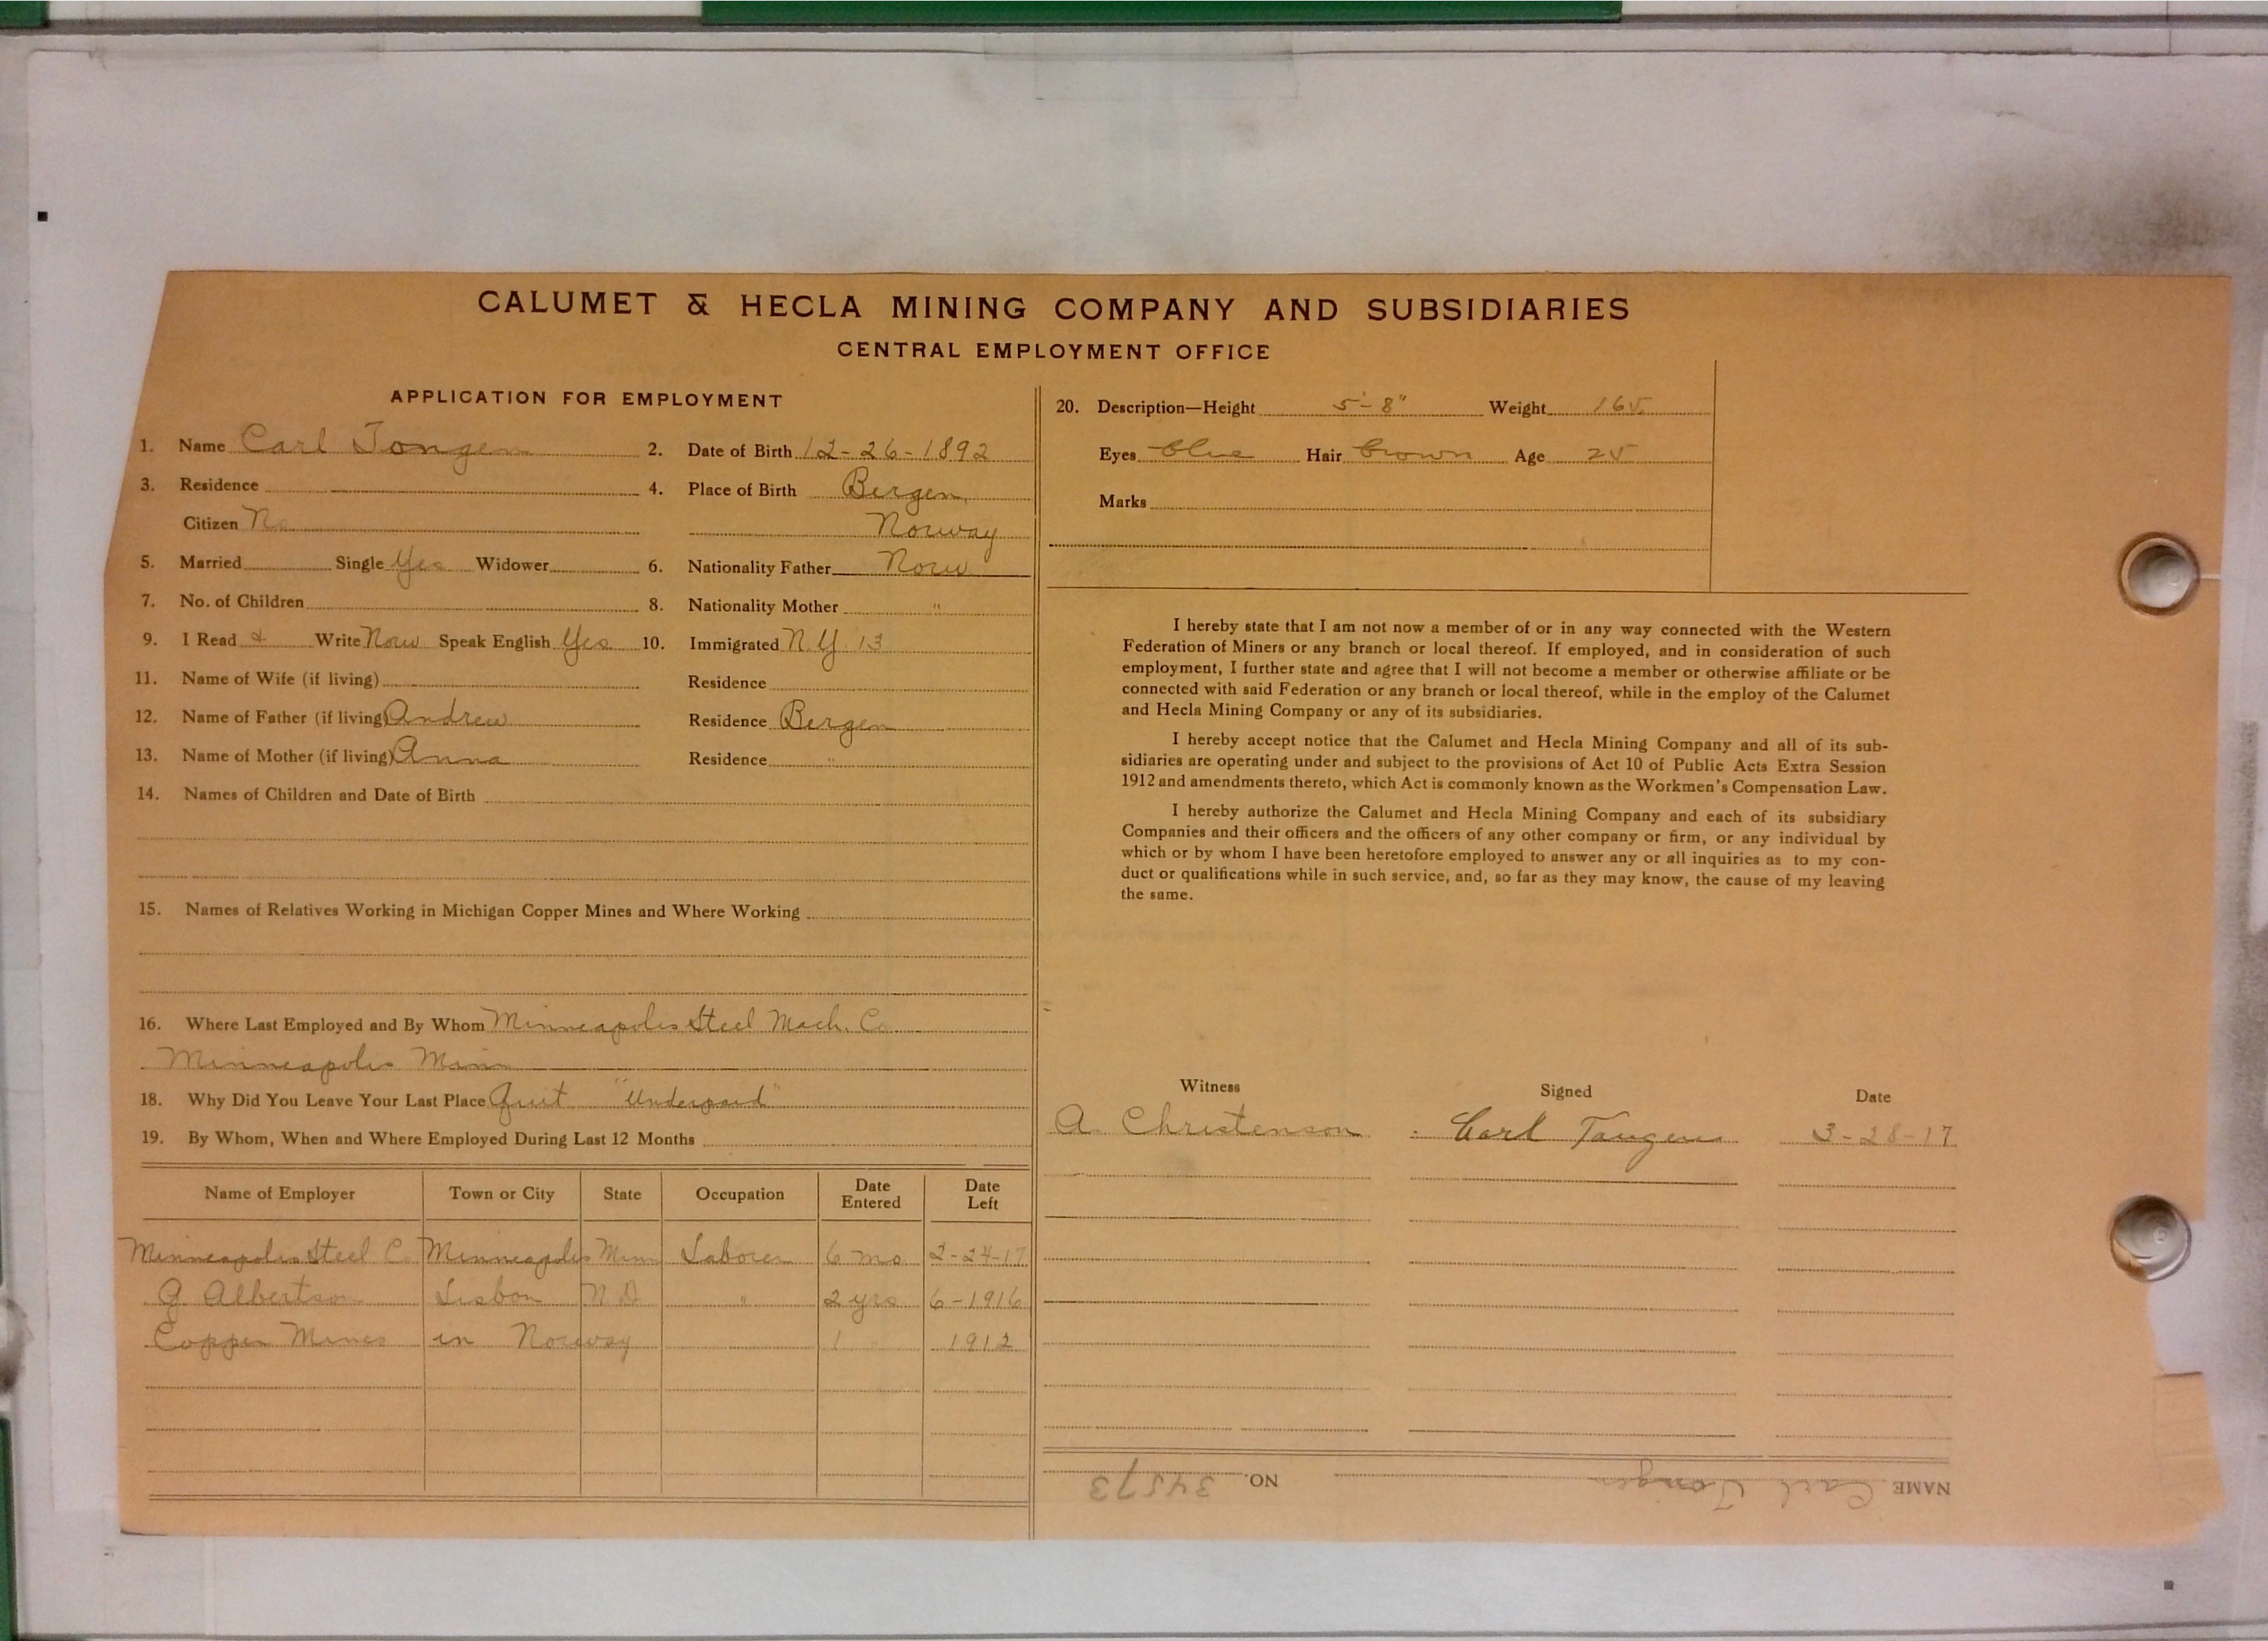 CALUMET & HECLA MINING COMPANY AND SUBSIDIARIES
CENTRAL EMPLOYMENT OFFICE
APPLICATION FOR EMPLOYMENT
1. Name Carl Tongen 2. Date of Birth 12-26-1892
3. Residence 4. Place of Birth Bergen,
Citizen No Norway
5. Married Single Yes Widower 6. Nationality Father Norw
7. No. of Children 8. Nationality Mother "
9. I Read & Write Norw Speak English Yes 10. Immigrated N.Y. 13
11. Name of Wife (if living) Residence
12. Name of Father (if living) Andrew Residence Bergen
13. Name of Mother (if living) Anna Residence "
14. Names of Children and Date of Birth
15. Names of Relatives Working in Michigan Copper Mines and Where Working
16. Where Last Employed and By Whom Minneapolis Steel Mach. Co
Minneapolis Minn
18. Why Did You Leave Your Last Place Quit "Underpaid"
19. By Whom, When and Where Employed During Last 12 Months
Name of Employer Town or City State Occupation Date Entered Date Left
Minneapolis Steel Co Minneapolis Minn Laborer 6 mo 2-24-17
G Albertson Lisbon N D " 2 yrs 6-1916
Copper Mines in Norway 1 " 1912
20. Description—Height 5'-8" Weight 165
Eyes blue Hair brown Age 25
Marks
I hereby state that I am not now a member of or in any way connected with the Western
Federation of Miners or any branch or local thereof. If employed, and in consideration of such
employment, I further state and agree that I will not become a member or otherwise affiliate or be
connected with said Federation or any branch or local thereof, while in the employ of the Calumet
and Hecla Mining Company or any of its subsidiaries.
I hereby accept notice that the Calumet and Hecla Mining Company and all of its sub-
sidiaries are operating under and subject to the provisions of Act 10 of Public Acts Extra Session
1912 and amendments thereto, which Act is commonly known as the Workmen's Compensation Law.
I hereby authorize the Calumet and Hecla Mining Company and each of its subsidiary
Companies and their officers and the officers of any other company or firm, or any individual by
which or by whom I have been heretofore employed to answer any or all inquiries as to my con-
duct or qualifications while in such service, and, so far as they may know, the cause of my leaving
the same.
Witness Signed Date
A. Christenson Carl Tangen 3-28-17
NAME Carl Tongen NO. 34573